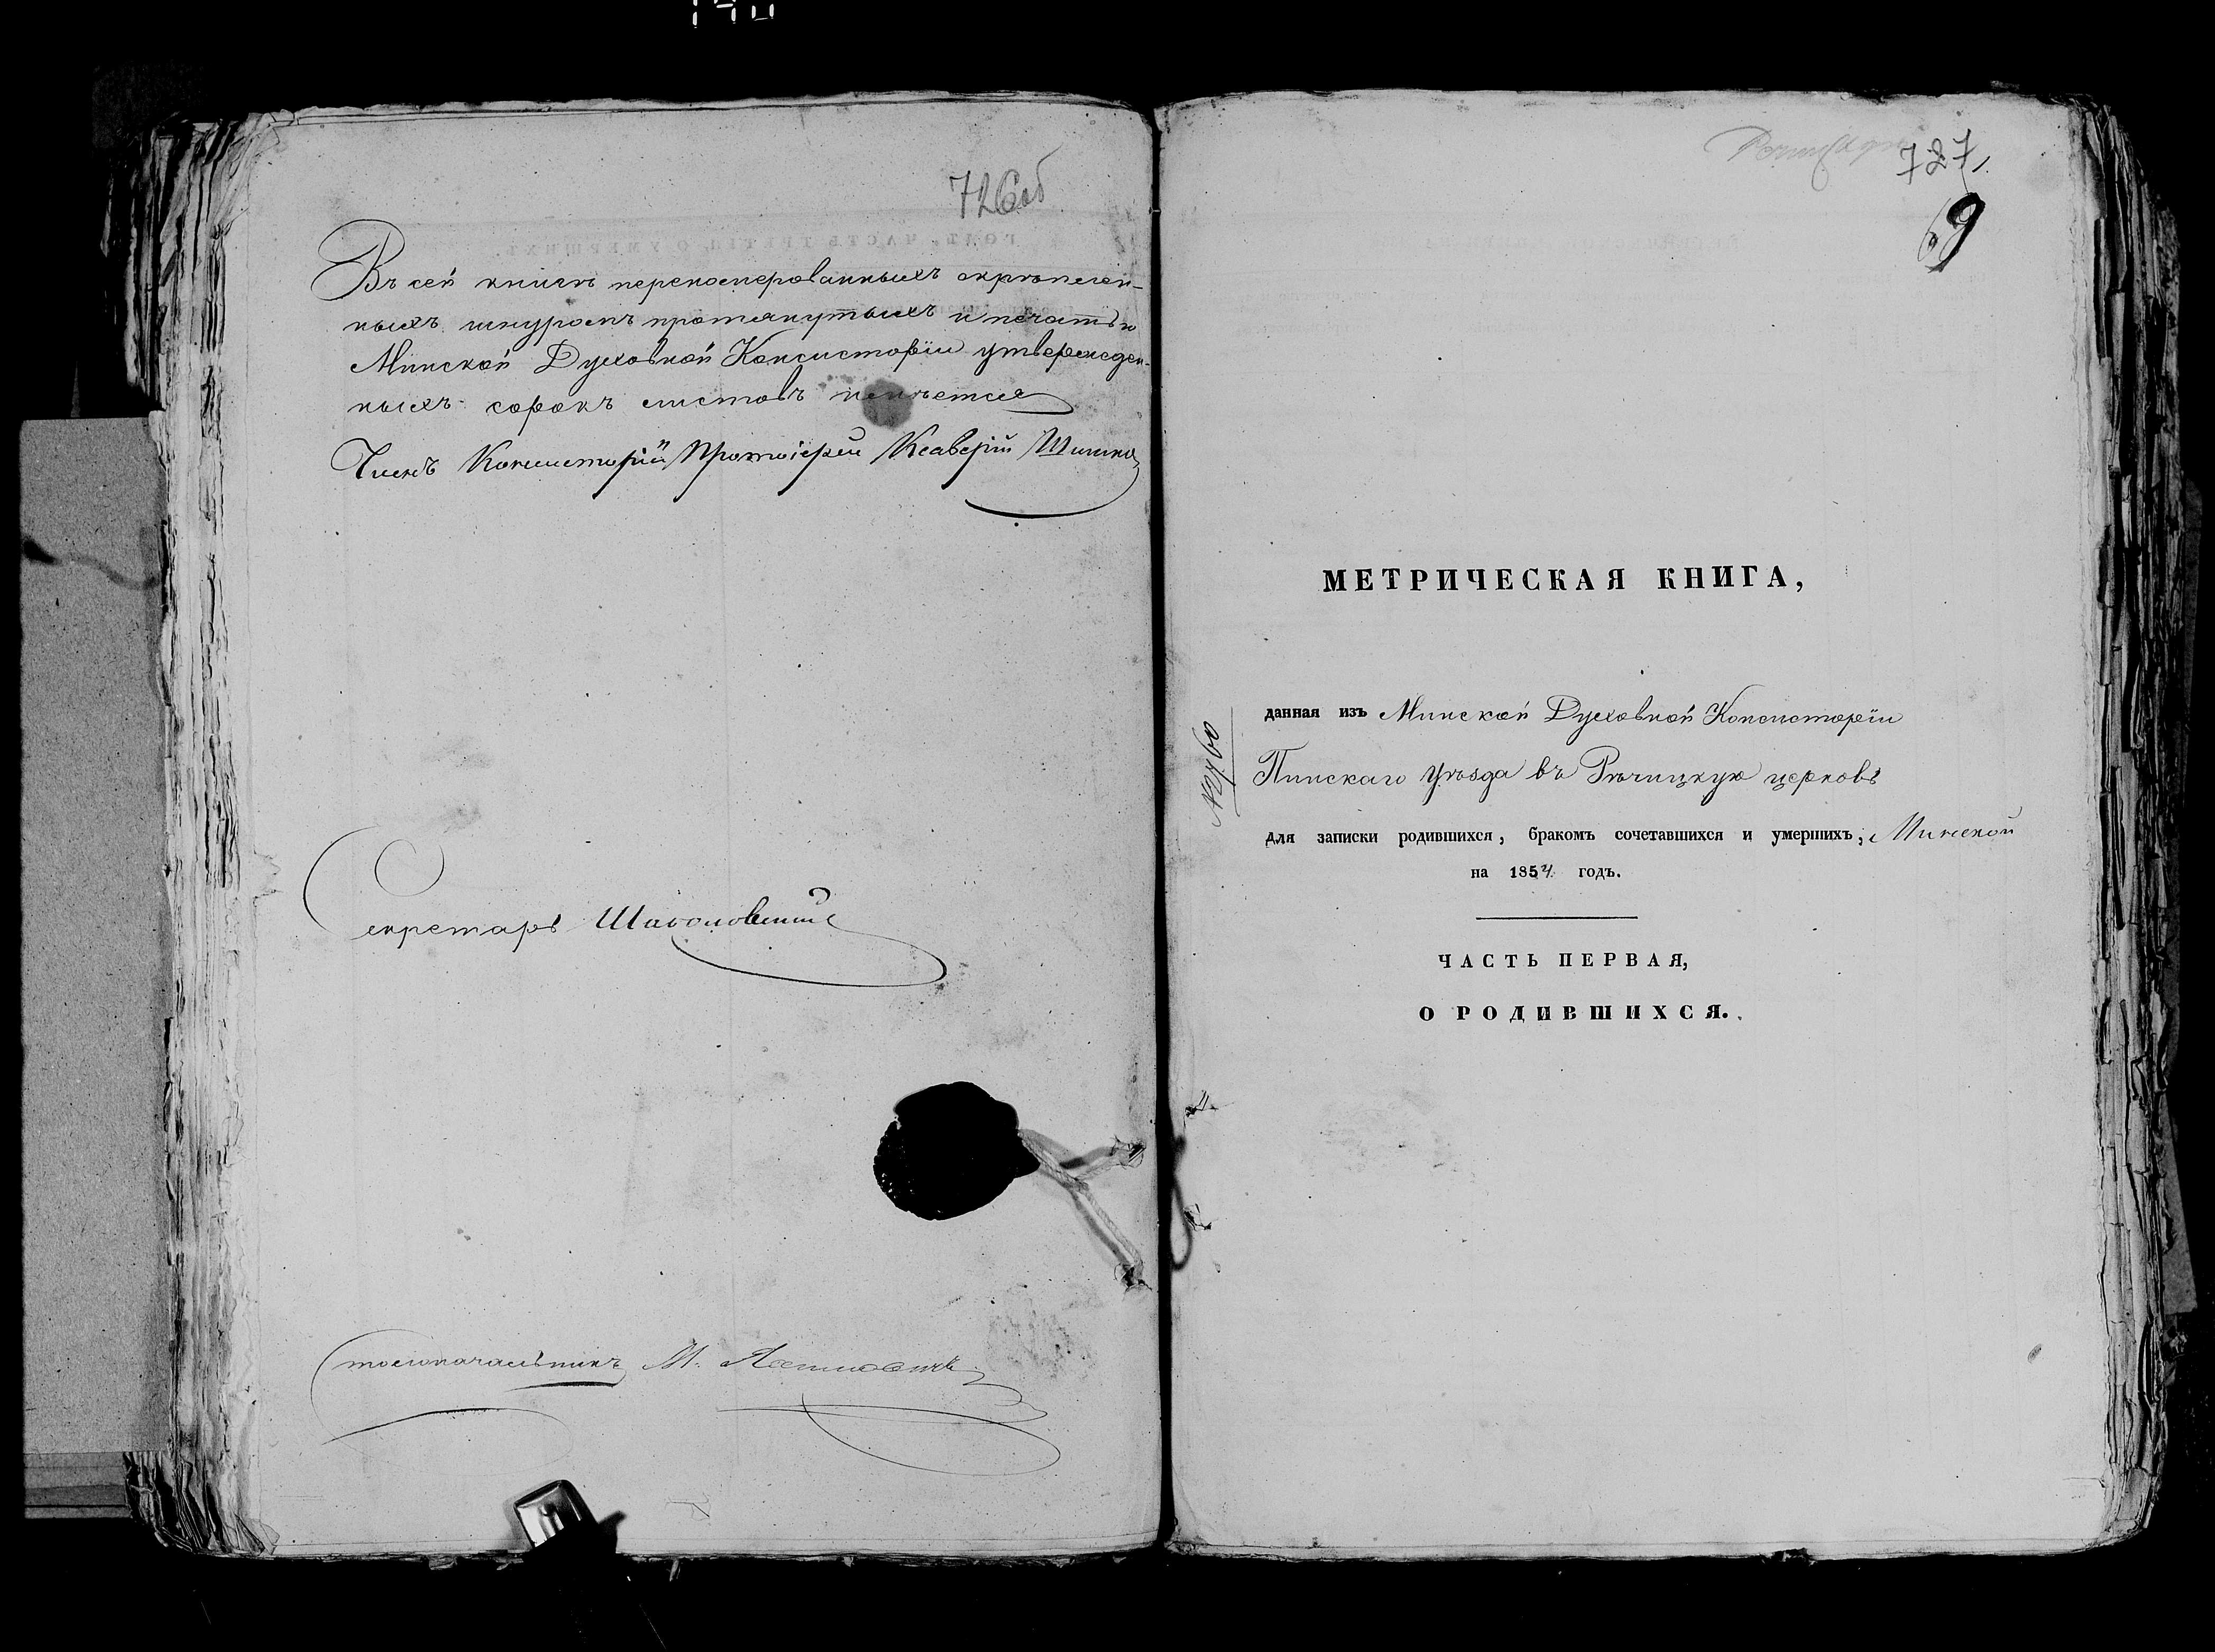 726об
Въ сей книгѣ переномерованныхъ скрѣплен-
ныхъ шнуромъ протянутыхъ и печатью
Минской Духовной Консисторіи утвержден-
ныхъ сорокъ листовъ имѣется
Членъ Консисторіи Протоіерей Ксаверій
Секретарь
Столоначальникъ М.
727
69
МЕТРИЧЕСКАЯ КНИГА,
данная изъ Минской Духовной Консисторіи
Пинскаго уѣзда въ Рѣчицкую церковь
для записки родившихся, бракомъ сочетавшихся и умершихъ; Минской
на 1854 годъ.
ЧАСТЬ ПЕРВАЯ,
О РОДИВШИХСЯ.